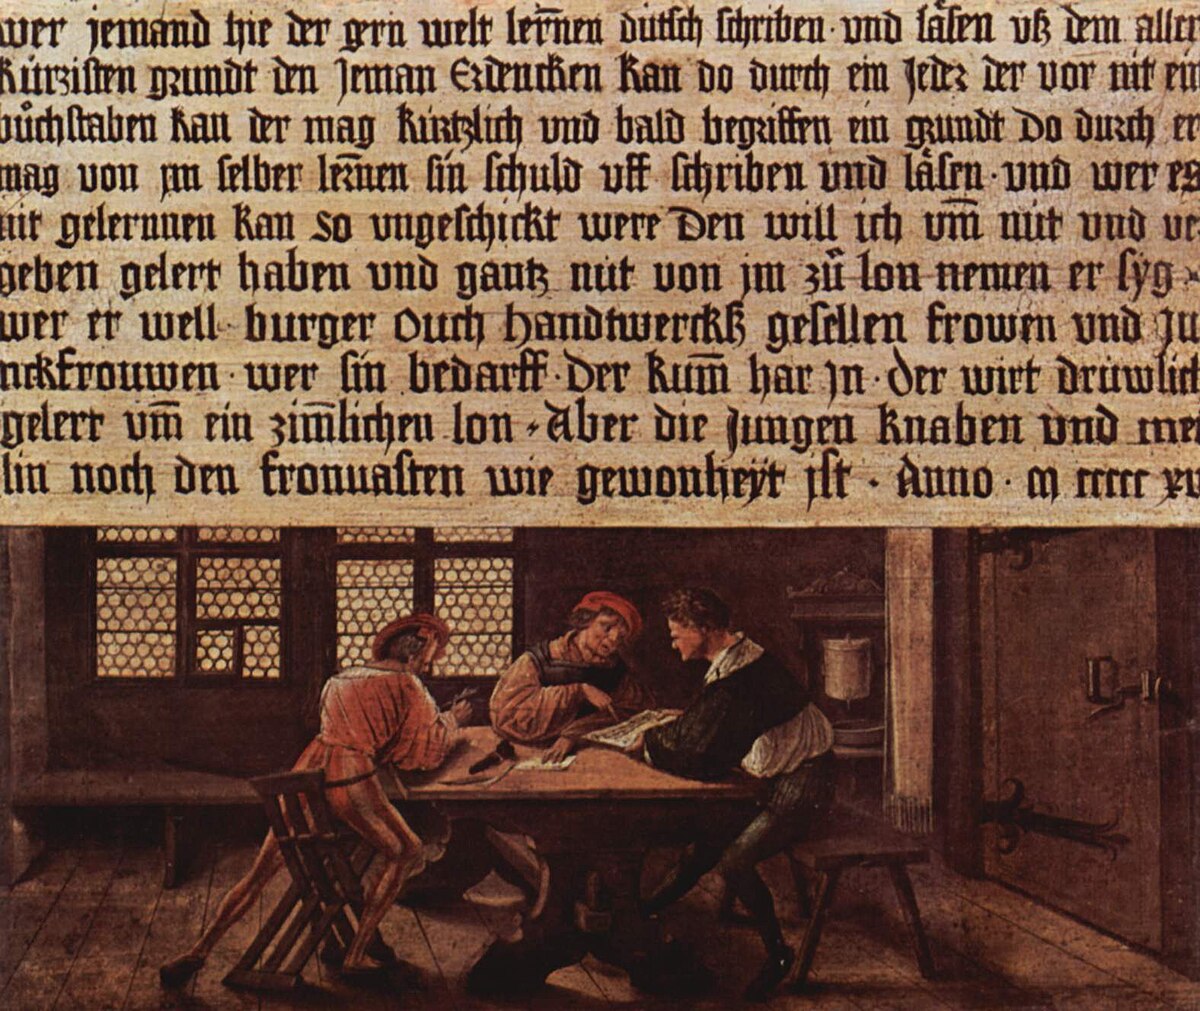 wer jemand hie der gern welt lern̄en dütsch schriben · vnd läsen vß dem aller
kürzisten grundt den Jeman Erdencken kan do durch ein jeder der vor nit ein
bůchstaben kan der mag kürtzlich vnd bald begriffen ein grundt do durch er
mag von jm selber lern̄en sin schuld vff schriben vnd läsen · vnd wer es
nit gelernnen kan so vngeschickt were Den will ich vm̄ nüt vnd ver
geben gelert haben vnd gantz nüt von jm zů lon nemen er syg
wer er well · burger Ouch handtwerckß gesellen frowen vnd Ju
nckfrouwen · wer sin bedarff · Der kum̄ har jn · der wirt drüwlich
gelert vm̄ ein zim̄lichen lon · Aber die Jungen knaben vnd mei
lin noch den fronuasten wie gewonheÿt ist · Anno · m ccccc xvi